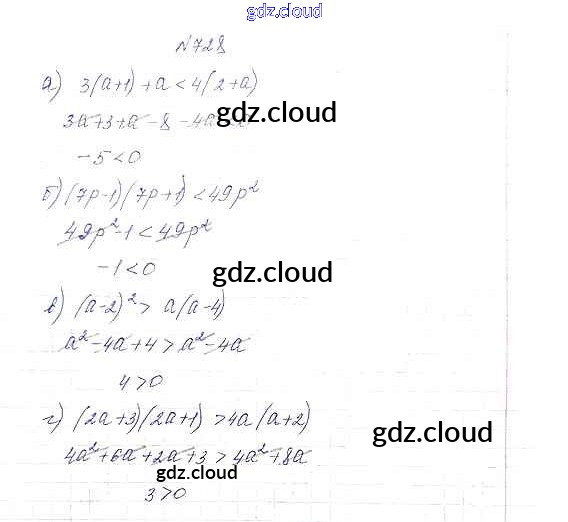 gdz.cloud
№728
а) 3(a+1)+a<4(2+a)
3a+3+a-8-4a
gdz.cloud
-5<0
б) (7p-1)(7p+1)<49p²
49p²-1<49p²
-1<0
gdz.cloud
в) (a-2)²> a(a-4)
a²-4a+4>a²-4a
4>0
г) (2a+3)(2a+1)>4a(a+2)
gdz.cloud
4a²+6a+2a+3>4a²+8a
gdz.cloud
3>0